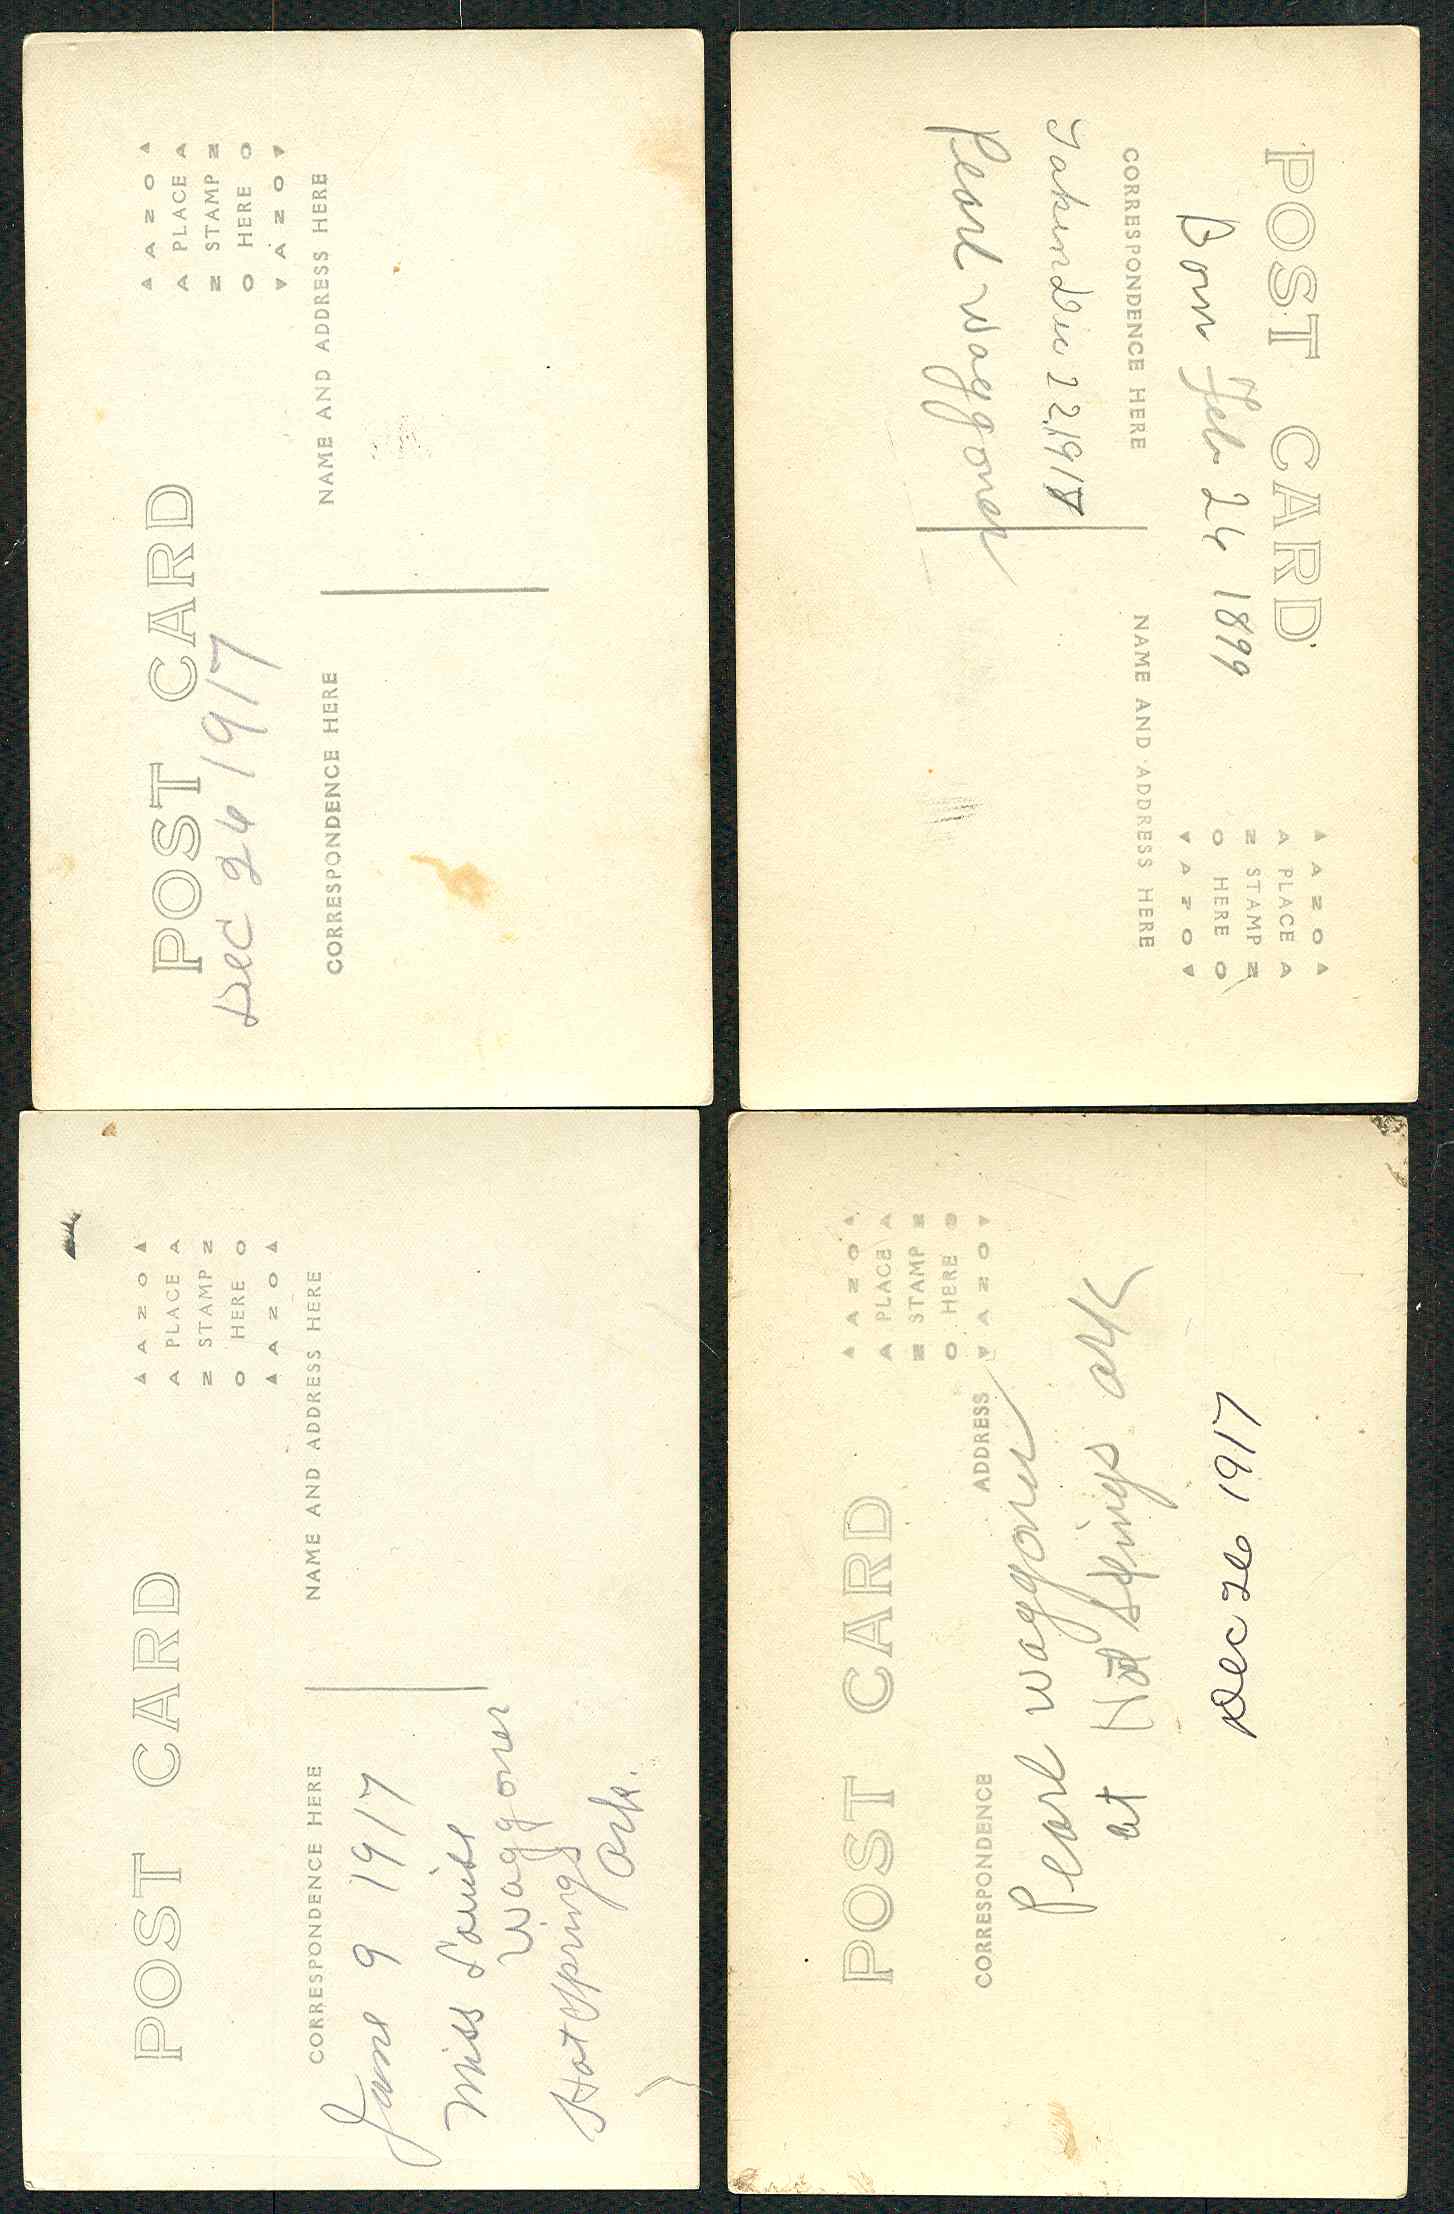 POST CARD
Dec 26 1917
CORRESPONDENCE HERE
NAME AND ADDRESS HERE
▲ A Z O ▲
A PLACE A
Z STAMP Z
O HERE O
▼ A Z O ▼
POST CARD
Born Feb 26 1899
CORRESPONDENCE HERE
NAME AND ADDRESS HERE
Taken Dec 22, 1917
Pearl Waggoner
▲ A Z O ▲
A PLACE A
Z STAMP Z
O HERE O
▼ A Z O ▼
POST CARD
CORRESPONDENCE HERE
NAME AND ADDRESS HERE
June 9 1917
Miss Louise
Waggoner
Hot Springs
Ark.
▲ A Z O ▲
A PLACE A
Z STAMP Z
O HERE O
▲ A Z O ▲
POST CARD
CORRESPONDENCE
ADDRESS
Pearl Waggoner
at Hot Springs Ark
Dec 26 1917
▲ A Z O ▲
A PLACE A
Z STAMP Z
O HERE O
▼ A Z O ▼